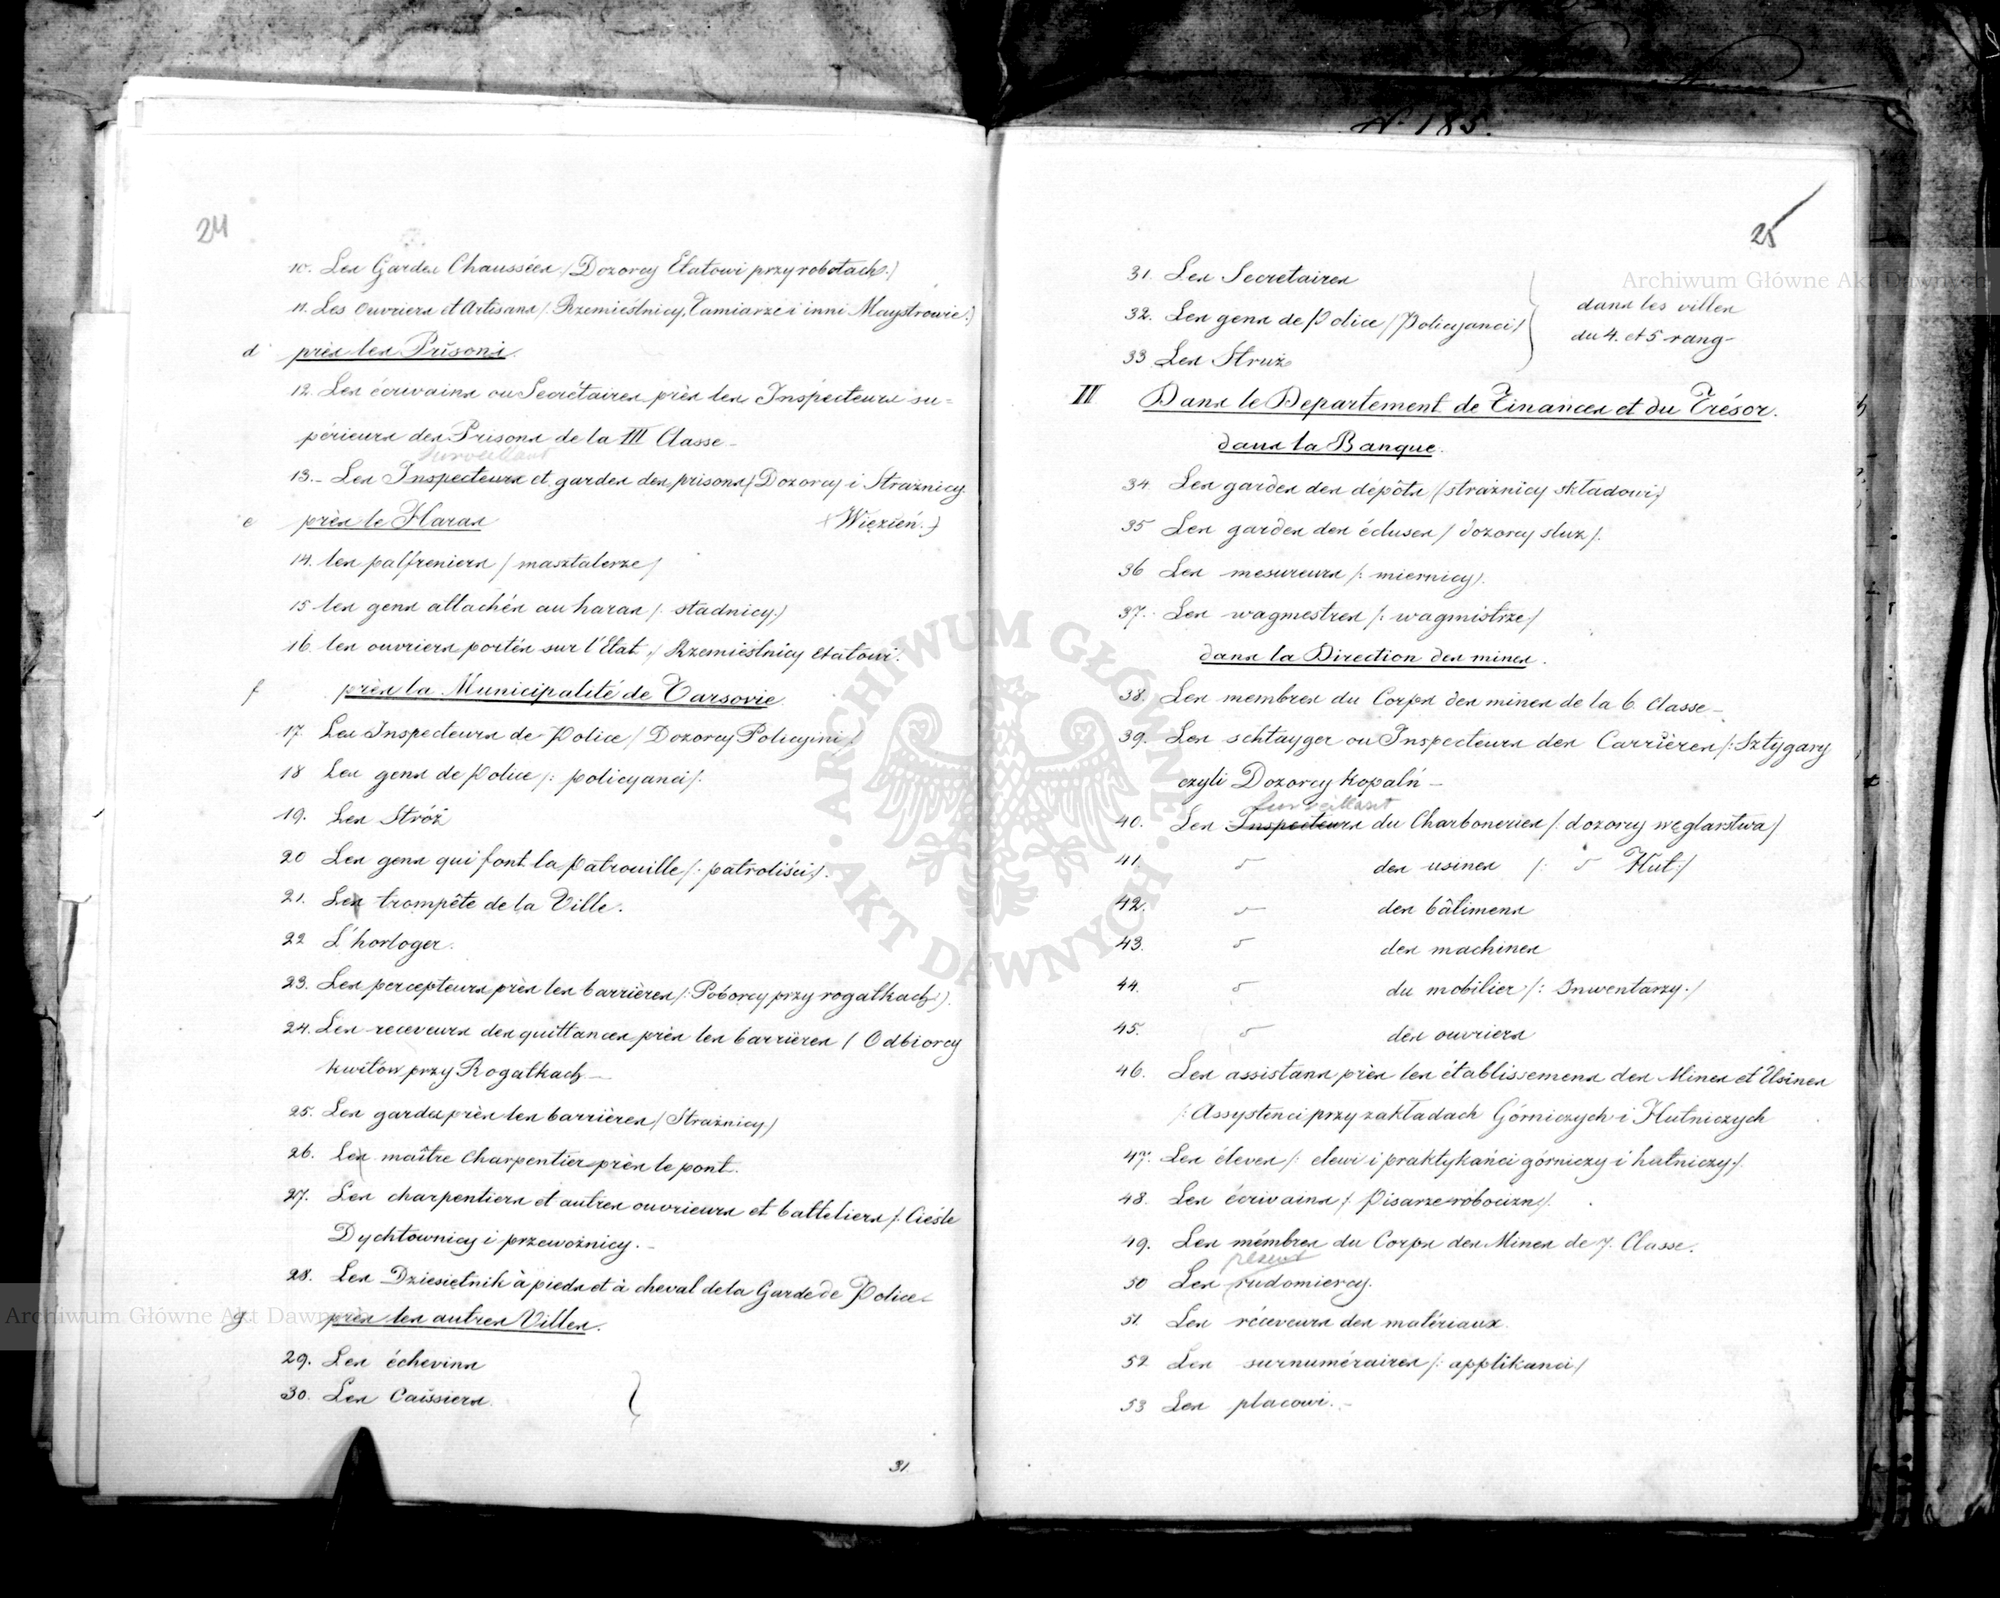 24
10. Les Gardes Chaussées /Dozorcy Etatowi przy robotach:/
11. Les Ouvriers et Artisans /: Rzemieślnicy, Tamiarze i inni Maystrowie:/
d près les Prisons.
12. Les écrivains ou Secrétaires près les Inspecteurs su-
périeurs des Prisons de la III Classe -
surveillant
13.- Les Inspecteurs et gardes des prisons /Dozorcy i Strażnicy
e près le Haras /Więzień./
14. les palfreniers / masztalerze/
15 les gens attachés au haras /: stadnicy:/
16. les ouvriers portés sur l'Etat / Rzemieślnicy etatowi.
f près la Municipalité de Varsovie
17. Les Inspecteurs de Police / Dozorcy Policyjni/
18 Les gens de Police /: policyanci/.
19. Les Stróż
20 Les gens qui font la patrouille /: patroliści:/.
21. Les trompête de la Ville.
22 L'horloger.
23. Les percepteurs près les barrières /: Poborcy przy rogatkach:/.
24. Les receveurs des quittances près les barrières / Odbiorcy
kwitów przy Rogatkach -
25. Les gardes près les barrières / Strażnicy/
26. Les maître Charpentier près le pont.
27. Les charpentiers et autres ouvrieurs et batteliers /: Cieśle
Dychtownicy i przewoźnicy. -
28. Les Dziesiętnik à pieds et à cheval de la Garde de Police
g près les autres Villes.
29. Les échevins
30. Les Caissiers.
31
N. 185.
25
31. Les Secretaires
32. Les gens de Police /Policyanci/
33 Les Struż
dans les villes
du 4. et 5 rang-
III Dans le Departement de Finances et du Trésor.
dans la Banque.
34. Les gardes des dépôts /strażnicy składowi/
35 Les gardes des écluses / dozorcy sluz/.
36 Les mesureurs /: miernicy/.
37. Les wagmestres /: wagmistrze/
dans la Direction des mines.
38. Les membres du Corps des mines de la 6. Classe -
39. Les schtayger ou Inspecteurs des Carrières /: Sztygary
czyli Dozorcy Kopalń -
surveillant
40. Les Inspecteurs du Charboneries /: dozorcy węglarstwa/
41. " des usines /: " Hut:/
42. " des bâtimens
43. " des machines
44. " du mobilier /: Inwentarzy:/
45. " des ouvriers
46. Les assistans près les établissemens des Mines et Usines
/: Assystenci przy zakładach Górniczych i Hutniczych
47. Les élèves /: elewi i praktykańci górniczy i hutniczy:/.
48. Les écrivains /: Pisarze robocizn/.
49. Les mémbres du Corps des Mines de 7. Classe.
50 Les rudomiercy.
51. Les réceveurs des matériaux.
52 Les surnuméraires /: applikanci/
53 Les placowi. -
ARCHIWUM GŁÓWNE AKT DAWNYCH
Archiwum Główne Akt Dawnych
Archiwum Główne Akt Dawnych